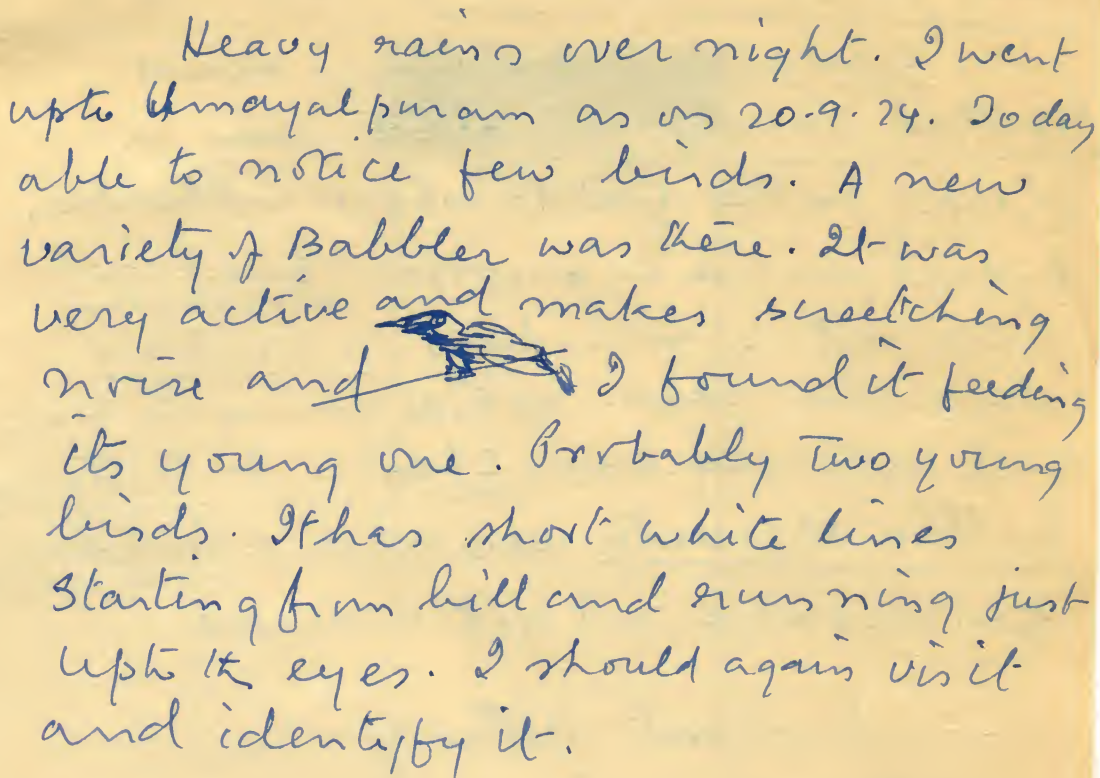 Heavy rains over night. I went
upto Umayalpuram as on 20.9.74. Today
able to notice few birds. A new
variety of Babbler was there. It was
very active and makes screetching
noise and I found it feeding
its young one. Probably Two young
birds. It has short white lines
starting from bill and running just
upto the eyes. I should again visit
and identify it.